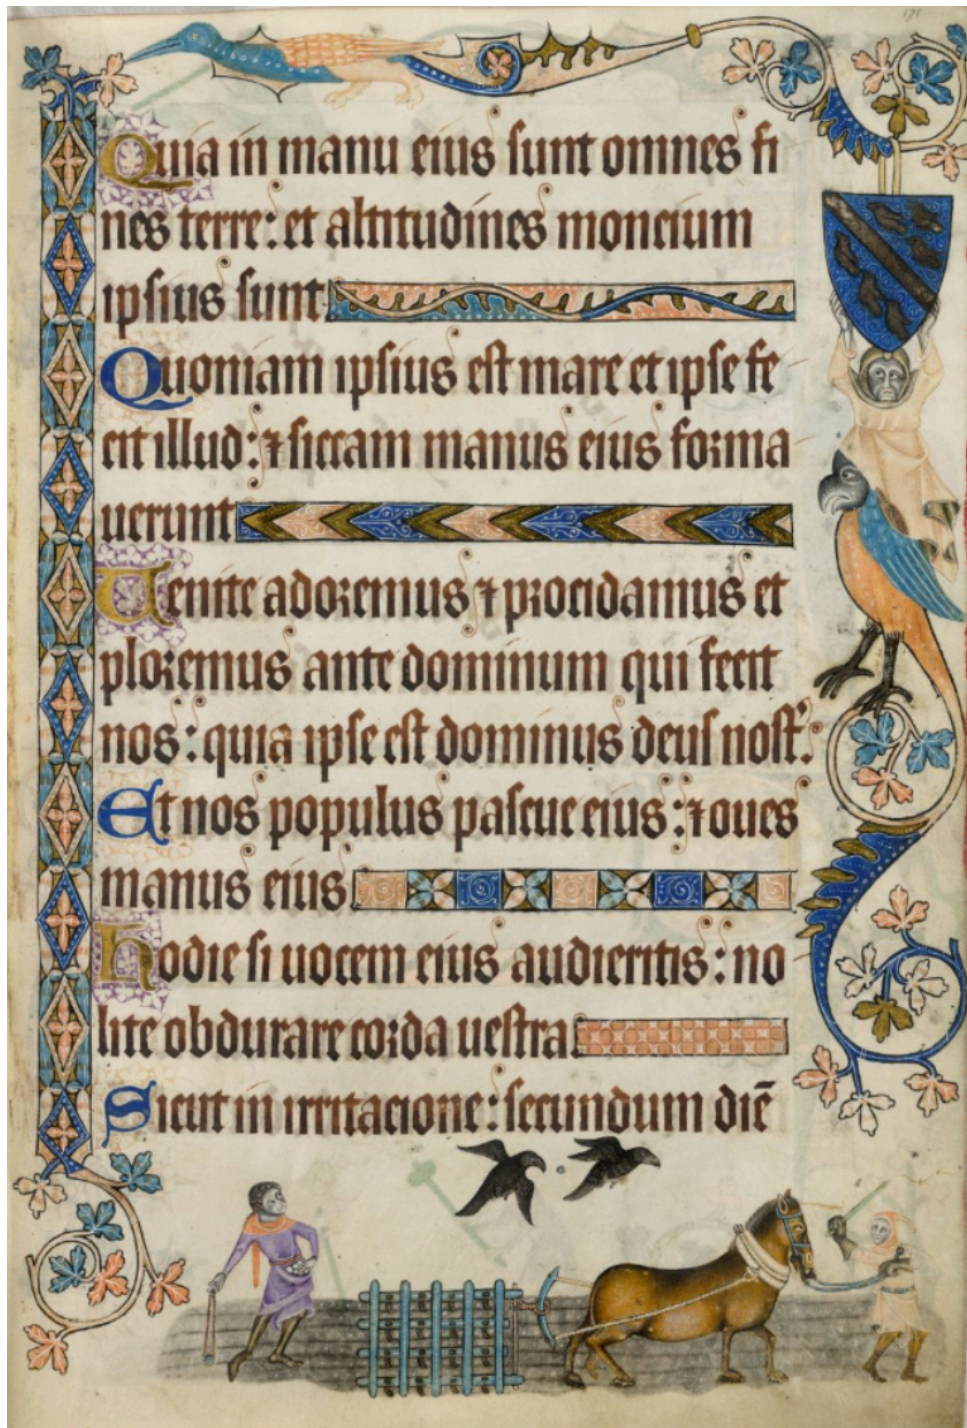 171
Quia in manu eius sunt omnes fi
nes terre: et altitudines moncium
ipsius sunt
Quoniam ipsius est mare et ipse fe
cit illud: ⁊ siccam manus eius forma
uerunt
Uenite adoremus ⁊ procidamus et
ploremus ante dominum qui fecit
nos: quia ipse est dominus deus nost̕:
Et nos populus pascue eius: ⁊ oues
manus eius
hodie si uocem eius audieritis: no
lite obdurare corda uestra
Sicut in irritacione: secundum diē